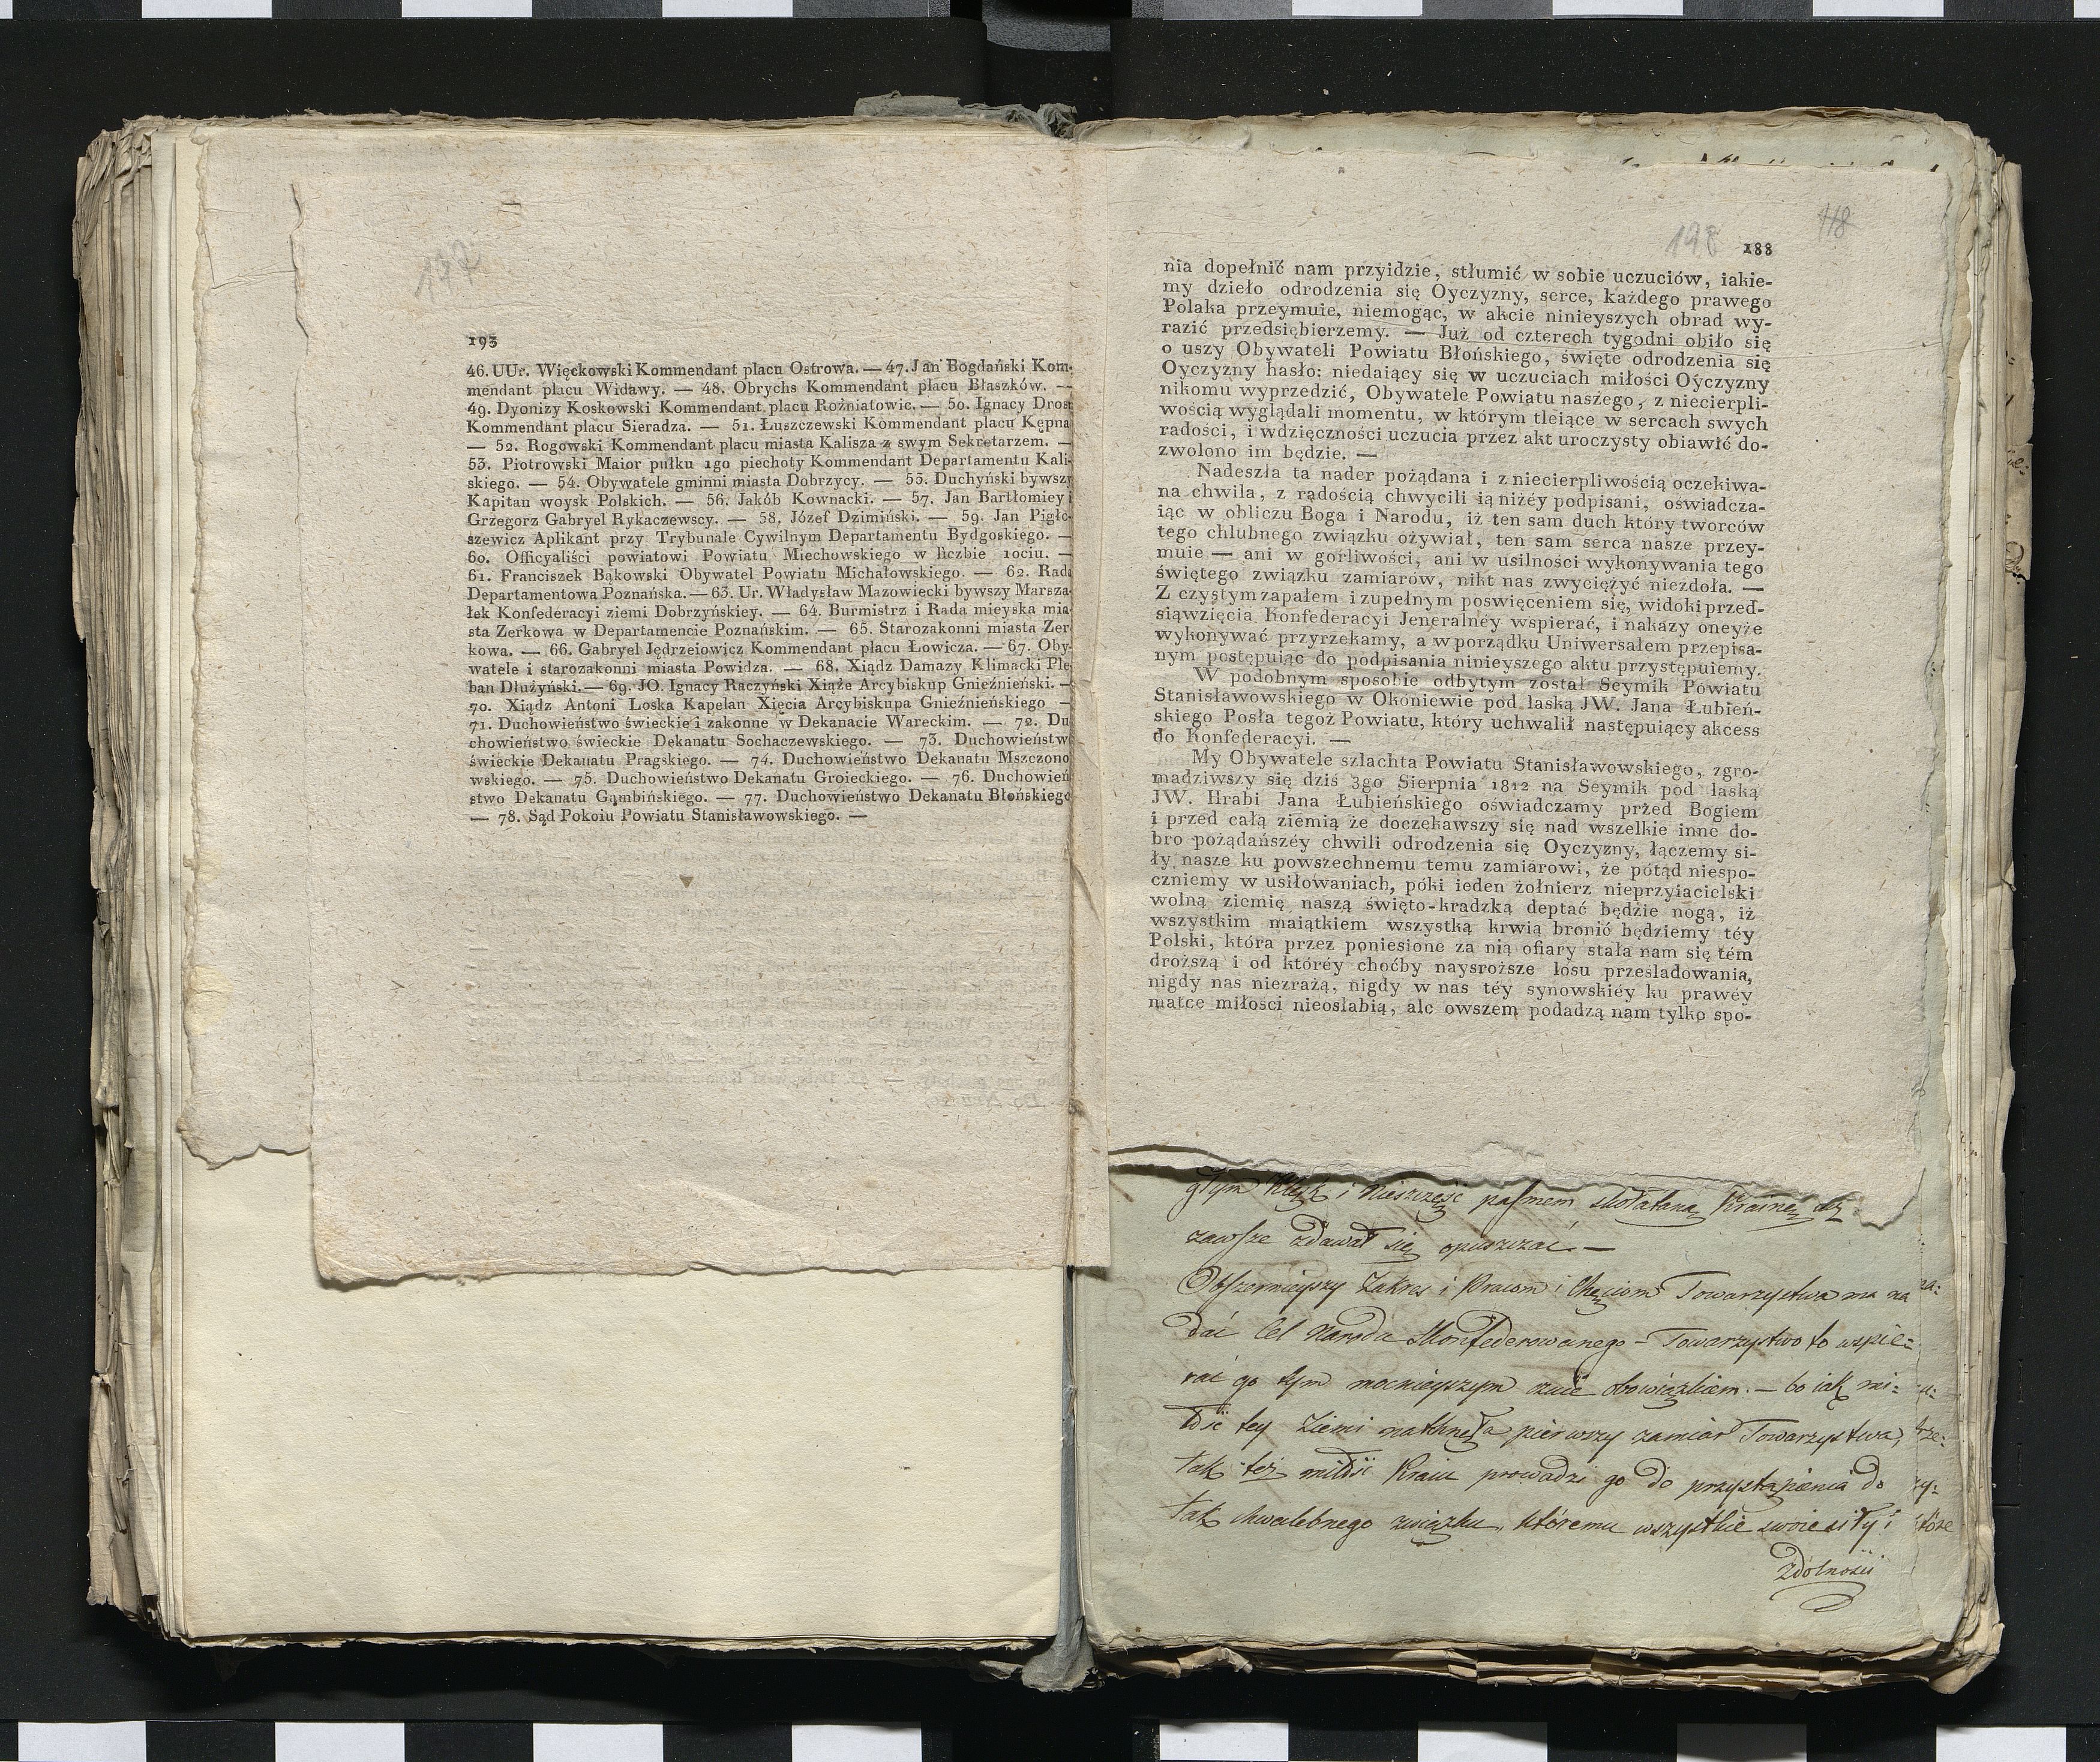 197
193
46. UUr. Więckowski Kommendant placu Ostrowa. — 47. Jan Bogdański Kom-
mendant placu Widawy. — 48. Obrychs Kommendant placu Błaszków. —
49. Dyonizy Koskowski Kommendant placu Rożniatowic. — 50. Ignacy Drost
Kommendant placu Sieradza. — 51. Łuszczewski Kommendant placu Kępna
— 52. Rogowski Kommendant placu miasta Kalisza z swym Sekretarzem. —
53. Piotrowski Maior pułku 1go piechoty Kommendant Departamentu Kali-
skiego. — 54. Obywatele gminni miasta Dobrzycy. — 55. Duchyński bywszy
Kapitan woysk Polskich. — 56. Jakób Kownacki. — 57. Jan Bartłomiey i
Grzegorz Gabryel Rykaczewscy. — 58. Józef Dzimiński. — 59. Jan Pigło-
szewicz Aplikant przy Trybunale Cywilnym Departamentu Bydgoskiego. —
60. Officyaliści powiatowi Powiatu Miechowskiego w liczbie 10ciu. —
61. Franciszek Bąkowski Obywatel Powiatu Michałowskiego. — 62. Rada
Departamentowa Poznańska. — 63. Ur. Władysław Mazowiecki bywszy Marsza-
łek Konfederacyi ziemi Dobrzyńskiey. — 64. Burmistrz i Rada mieyska mia-
sta Zerkowa w Departamencie Poznańskim. — 65. Starozakonni miasta Zer-
kowa. — 66. Gabryel Jędrzeiowicz Kommendant placu Łowicza. — 67. Oby-
watele i starozakonni miasta Powidza. — 68. Xiądz Damazy Klimacki Ple-
ban Dłużyński. — 69. JO. Ignacy Raczyński Xiąże Arcybiskup Gnieźnieński. —
70. Xiądz Antoni Loska Kapelan Xięcia Arcybiskupa Gnieźnieńskiego —
71. Duchowieństwo świeckie i zakonne w Dekanacie Wareckim. — 72. Du
chowieństwo świeckie Dekanatu Sochaczewskiego. — 73. Duchowieństwo
świeckie Dekanatu Pragskiego. — 74. Duchowieństwo Dekanatu Mszczono
wskiego. — 75. Duchowieństwo Dekanatu Groieckiego. — 76. Duchowień
stwo Dekanatu Gąmbińskiego. — 77. Duchowieństwo Dekanatu Błońskiego
— 78. Sąd Pokoiu Powiatu Stanisławowskiego. —
198
118
188
nia dopełnić nam przyidzie, stłumić w sobie uczuciów, iakie-
my dzieło odrodzenia się Oyczyzny, serce, każdego prawego
Polaka przeymuie, niemogąc, w akcie ninieyszych obrad wy-
razić przedsiębierzemy. — Już od czterech tygodni obiło się
o uszy Obywateli Powiatu Błońskiego, święte odrodzenia się
Oyczyzny hasło: niedaiący się w uczuciach miłości Oyczyzny
nikomu wyprzedzić, Obywatele Powiatu naszego, z niecierpli-
wością wyglądali momentu, w którym tleiące w sercach swych
radości, i wdzięczności uczucia przez akt uroczysty obiawić do-
zwolono im będzie. —
Nadeszła ta nader pożądana i z niecierpliwością oczekiwa-
na chwila, z radością chwycili ią niżéy podpisani, oświadcza-
iąc w obliczu Boga i Narodu, iż ten sam duch który tworców
tego chlubnego związku ożywiał, ten sam serca nasze przey-
muie — ani w gorliwości, ani w usilności wykonywania tego
świętego związku zamiarów, nikt nas zwyciężyć niezdoła. —
Z czystym zapałem i zupełnym poswięceniem się, widoki przed-
siąwzięcia Konfederacyi Jeneralnéy wspierać, i nakazy oneyże
wykonywać przyrzekamy, a w porządku Uniwersałem przepisa-
nym postępuiąc do podpisania ninieyszego aktu przystępuiemy.
W podobnym sposobie odbytym został Seymik Powiatu
Stanisławowskiego w Okoniewie pod laską JW. Jana Łubień-
skiego Posła tegoż Powiatu, który uchwalił następuiący akcess
do Konfederacyi. —
My Obywatele szlachta Powiatu Stanisławowskiego, zgro-
madziwszy się dziś 3go Sierpnia 1812 na Seymik pod łaską
JW. Hrabi Jana Łubieńskiego oświadczamy przed Bogiem
i przed całą ziemią że doczekawszy się nad wszelkie inne do-
bro pożądańszéy chwili odrodzenia się Oyczyzny, łączemy si-
ły nasze ku powszechnemu temu zamiarowi, że potąd niespo-
czniemy w usiłowaniach, póki ieden żołnierz nieprzyiacielski
wolną ziemię naszą święto-kradzką deptać będzie nogą, iż
wszystkim maiątkiem wszystką krwią bronić będziemy téy
Polski, która przez poniesione za nią ofiary stała nam się tém
droższą i od któréy choćby naysroższe losu prześladowania,
nigdy nas niezrażą, nigdy w nas téy synowskiéy ku prawéy
matce miłości nieosłabią, ale owszem podadzą nam tylko spo-
głym klęsk i nieszczęść pasmem skołataną Krainę
zawsze zdawał się opuszczać —
Obszernieyszy Zakres i Pracom i Chęciom Towarzystwa ma na
dać Cel Narodu Skonfederowanego — Towarzystwo to wspie-
rać go tym mocnieyszym czuie obowiązkiem. — bo iak mi-
łość tey Ziemi natchnęła pierwszy zamiar Towarzystwa,
tak też miłość Kraiu prowadzi go do przystąpienia do
tak chwalebnego związku, któremu wszystkie swoie siły i
zdolności